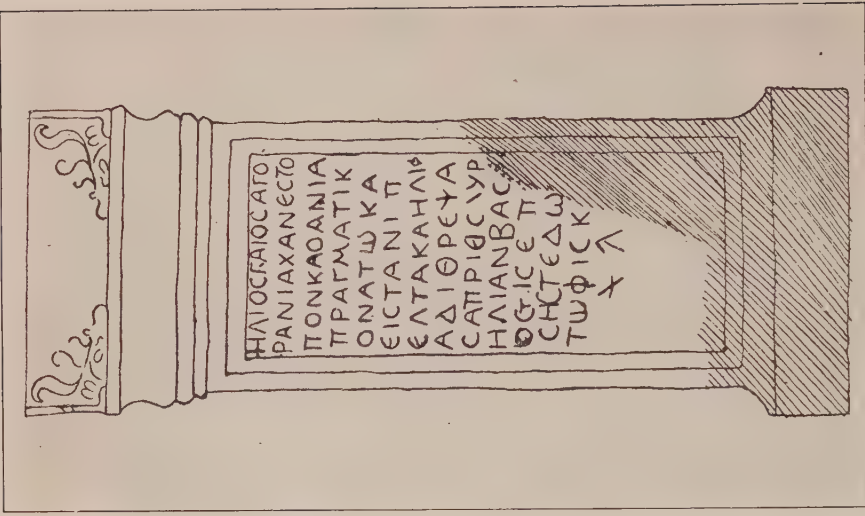 ΗΛΙΟCΓΑΙΟCΑΓΟ
ΡΑΝΙΑΧΑΝΕCΤΟ
ΠΟΝΚΑΟΑΝΙΑ
ΠΡΑΓΜΑΤΙΚ
ΟΝΑΤΩΚΑ
ΕΙCΤΑΝΙΠ
ΕΛΤΑΚΑΗΛΙΦ
ΑΔΙΘΡΕΨΑ
CΑΠΡΙΘCΙΥΡ
ΗΛΙΑΝΒΑC
CΗCΤΕΔΩ
ΤΩΦΙCΚ